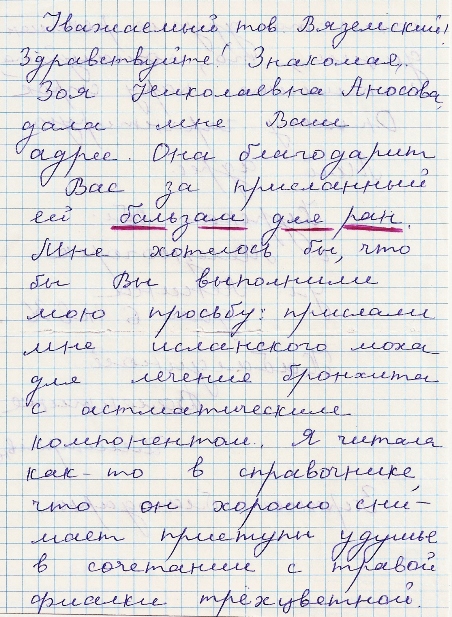 Уважаемый тов. Вяземский!
Здравствуйте! Знакомая,
Зоя Николаевна Аносова,
дала мне Ваш
адрес. Она благодарит
Вас за присланный
ей бальзам для ран.
Мне хотелось бы, что
бы Вы выполнили
мою просьбу: прислали
мне исланского моха
для лечение бронхита
с астматическим
компонентом. Я читала
как-то в справочнике
что он хорошо сни-
мает приступы удушье
в сочетании с травой
фиалки трёхцветной.